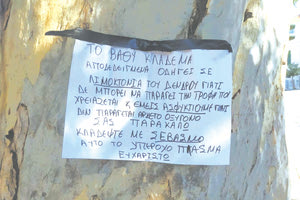 ΤΟ ΒΑΘΥ ΚΛΑΔΕΜΑ
ΑΠΟΔΕΔΕΙΓΜΕΝΑ ΟΔΗΓΕΙ ΣΕ
ΛΙΜΟΚΤΟΝΙΑ ΤΟΥ ΔΕΝΔΡΟΥ ΓΙΑΤΙ
ΔΕ ΜΠΟΡΕΙ ΝΑ ΠΑΡΑΓΕΙ ΤΗΝ ΤΡΟΦΗ ΠΟΥ
ΧΡΕΙΑΖΕΤΑΙ & ΕΜΕΙΣ ΑΣΦΥΚΤΙΟΥΜΕ ΓΙΑΤΙ
ΔΕΝ ΠΑΡΑΓΕΤΑΙ ΑΡΚΕΤΟ ΟΞΥΓΟΝΟ
ΣΑΣ ΠΑΡΑΚΑΛΩ
ΚΛΑΔΕΨΤΕ ΜΕ ΣΕΒΑΣΜΟ
ΑΥΤΟ ΤΟ ΥΠΕΡΟΧΟ ΠΛΑΣΜΑ
ΕΥΧΑΡΙΣΤΩ